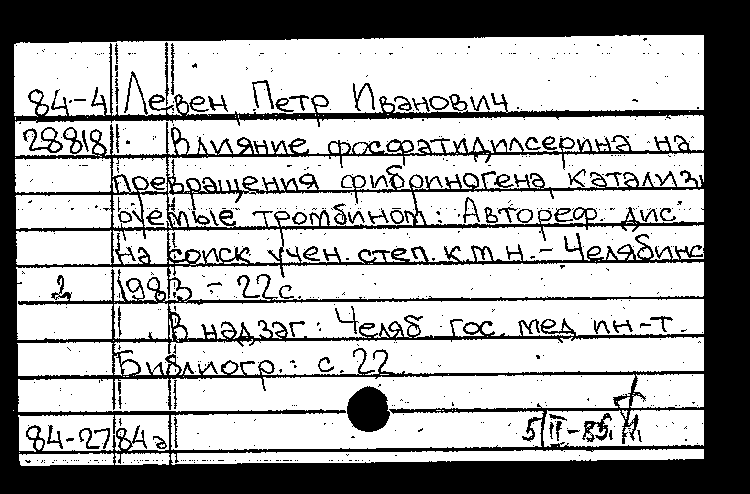 84-4 Левен, Петр Иванович
28818 Влияние фосфатидилсерина на
превращения фибриногена, катализи
руемые тромбином: Автореф. дис.
на соиск. учен. степ. к.м.н. - Челябинс
2 1983 - 22 с.
В надзаг.: Челяб. гос. мед. ин-т.
Библиогр.: с. 22
84-2784а 5/II-85